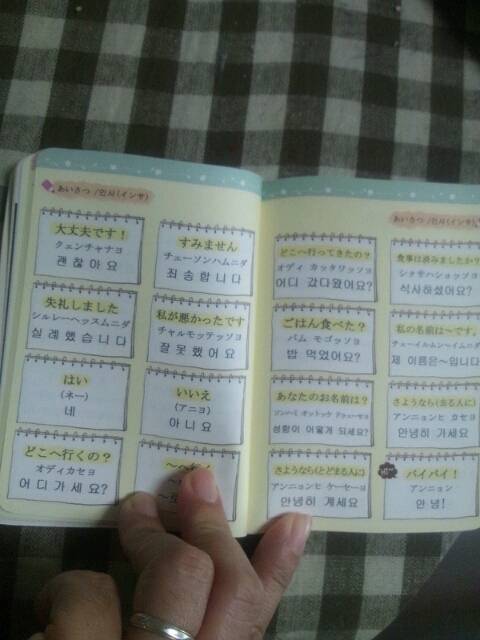 あいさつ /인사(インサ)
大丈夫です!
クェンチャナヨ
괜찮아요
すみません
チェーソンハムニダ
죄송합니다
失礼しました
シルレーヘッスムニダ
실례했습니다
私が悪かったです
チャルモッテッソヨ
잘못했어요
はい
(ネー)
네
いいえ
(アニヨ)
아니요
どこへ行くの?
オディカセヨ
어디가세요?
あいさつ /인사(インサ)
どこへ行ってきたの?
オディ カッタワッソヨ
어디 갔다왔어요?
食事は済みましたか?
シクサハショッソヨ
식사하셨어요?
ごはん食べた?
パム モゴッソヨ
밥 먹었어요?
私の名前は〜です。
チェーイルムン〜イムニダ
제 이름은〜입니다
あなたのお名前は?
성함이 어떻게 되세요?
さようなら(去る人に)
アンニョンヒ カセヨ
안녕히 가세요
さようなら(とどまる人に)
アンニョンヒ ケーセーヨ
안녕히 계세요
バイバイ!
アンニョン
안녕!